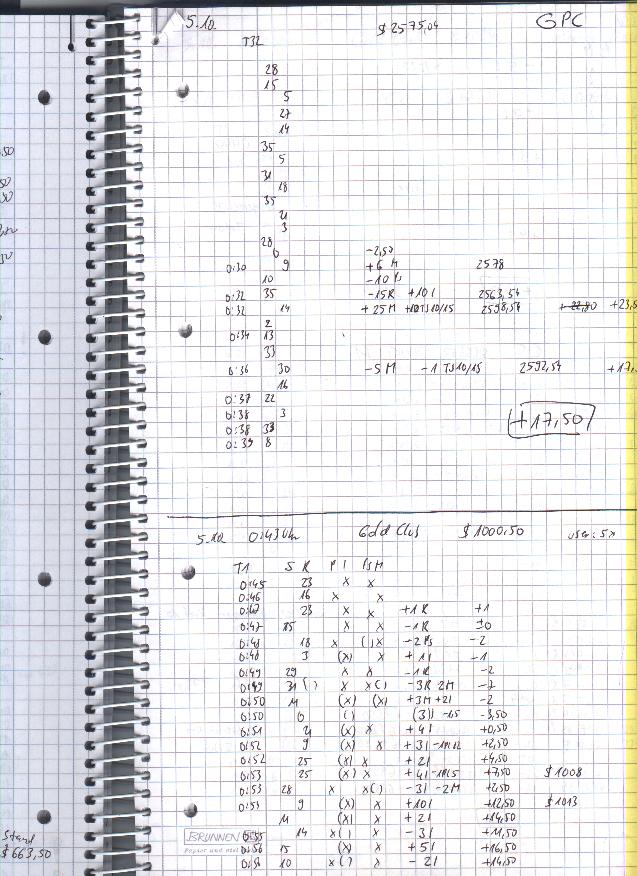 5.10 $ 2575,04 GPC
T32
28
15
5
27
14
35
5
31
18
35
21
3
28
0 -2,50
0:30 9 +6 M 2578
10 -10 Ps
0:32 35 -15R +10 I 2563,54
0:32 14 +25 M +10 TS 10/15 2598,54
2
0:34 13
33
0:36 30 -5 M -1 TS 10/15 2592,54
16
0:37 22
0:38 3
0:38 33
0:39 8
+17,50
5.10 0:43 Uhr Gold Club $ 1000,50
T1 S R P I Ps M
0:45 23 x x
0:46 16 x x
0:47 23 x x +1 R +1
0:47 15 x x -1 R ±0
0:48 18 x ( ) x -2 Ps -2
0:48 3 (x) x +1 I -1
0:49 29 x x -1R -2
0:49 31 ( ) x x ( ) -3R 2M -7
0:50 11 (x) (x) +3M +2I -2
0:50 0 ( ) (3) I -3,50
0:51 21 (x) x +4 I +0,50
0:52 9 (x) x +3 I +2,50
0:52 25 (x) x +2 I +4,50
0:53 25 (x) x +4 I +7,50 $ 1008
0:53 28 x x ( ) -3 I -2M +2,50
0:54 9 (x) x +10 I +12,50 $ 1013
11 (x) x +2 I +14,50
14 x ( ) x -3 I +11,50
BRUNNEN
0:56 15 (x) x +5 I +16,50
10 x ( ) x -2 I +14,50
Stand
$ 663,50